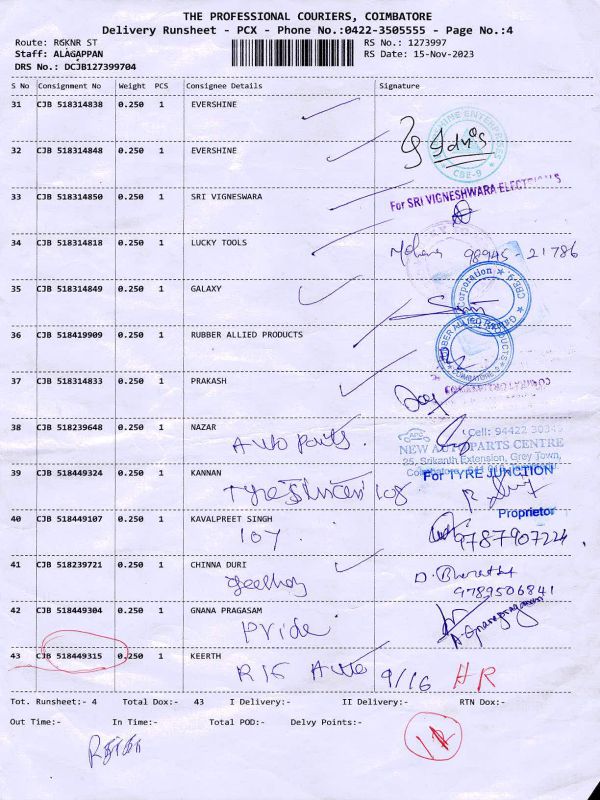 THE PROFESSIONAL COURIERS, COIMBATORE
Delivery Runsheet - PCX - Phone No.:0422-3505555 - Page No.:4
Route: RGKNR ST RS No.: 1273997
Staff: ALAGAPPAN RS Date: 15-Nov-2023
DRS No.: DCJB127399704
S No Consignment No Weight PCS Consignee Details Signature
31 CJB 518314838 0.250 1 EVERSHINE
32 CJB 518314848 0.250 1 EVERSHINE
CBE-9
33 CJB 518314850 0.250 1 SRI VIGNESWARA
For SRI VIGNESHWARA ELECTRICALS
34 CJB 518314818 0.250 1 LUCKY TOOLS
98945-21786
35 CJB 518314849 0.250 1 GALAXY
Corporation * CBE-9.
36 CJB 518419909 0.250 1 RUBBER ALLIED PRODUCTS
RUBBER ALLIED PRODUCTS
COIMBATORE
37 CJB 518314833 0.250 1 PRAKASH
38 CJB 518239648 0.250 1 NAZAR
Auto Parts.
Cell: 94422 30349
NEW AUTO PARTS CENTRE
25, Srikanth Extension, Grey Town,
39 CJB 518449324 0.250 1 KANNAN
Tyre 108
For TYRE JUNCTION
Proprietor
40 CJB 518449107 0.250 1 KAVALPREET SINGH
107.
9787907224
41 CJB 518239721 0.250 1 CHINNA DURI
D. Bharathi
9789506841
42 CJB 518449304 0.250 1 GNANA PRAGASAM
Pride
A. Gnanapragasam
43 CJB 518449315 0.250 1 KEERTH
R15 Auto 9/16 HR
Tot. Runsheet:- 4 Total Dox:- 43 I Delivery:- II Delivery:- RTN Dox:-
Out Time:- In Time:- Total POD:- Delvy Points:-